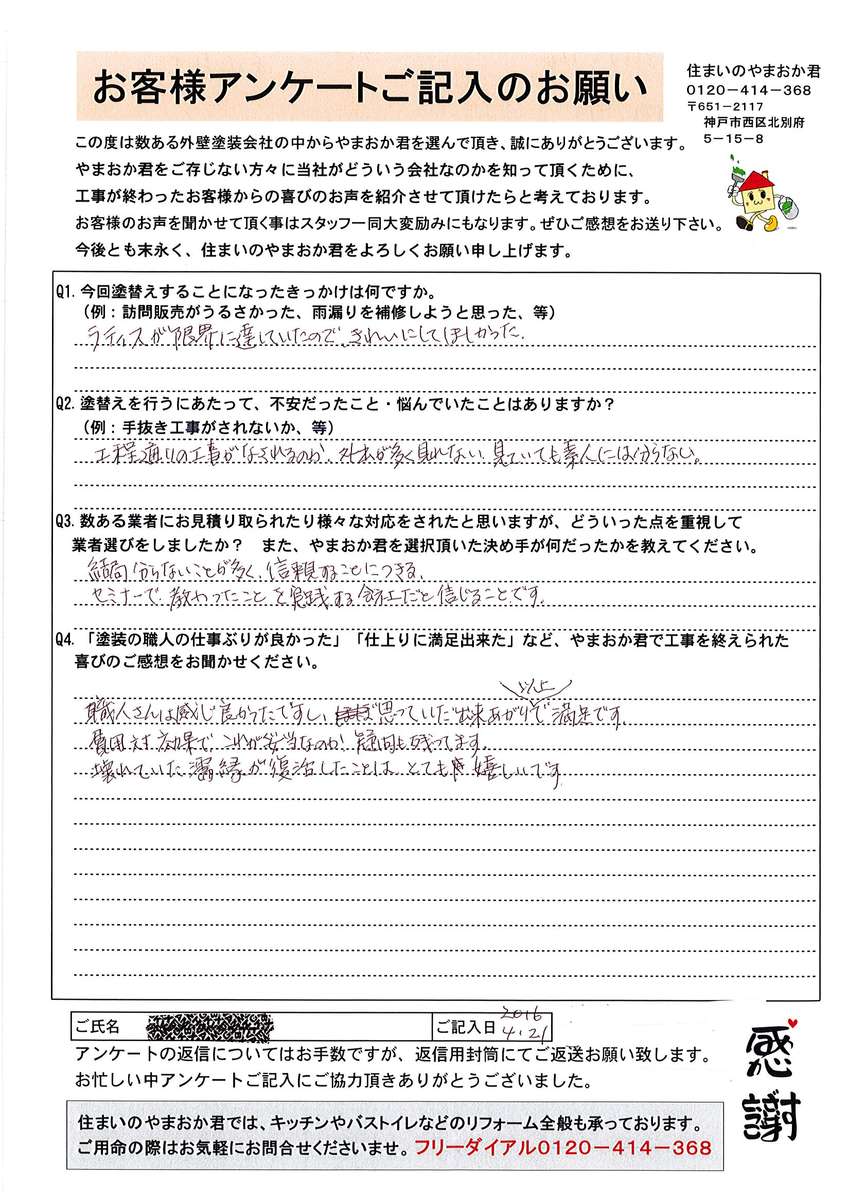 お客様アンケートご記入のお願い
住まいのやまおか君
0120-414-368
〒651-2117
神戸市西区北別府
5-15-8
この度は数ある外壁塗装会社の中からやまおか君を選んで頂き、誠にありがとうございます。
やまおか君をご存じない方々に当社がどういう会社なのかを知って頂くために、
工事が終わったお客様からの喜びのお声を紹介させて頂けたらと考えております。
お客様のお声を聞かせて頂く事はスタッフ一同大変励みにもなります。ぜひご感想をお送り下さい。
今後とも末永く、住まいのやまおか君をよろしくお願い申し上げます。
Q1. 今回塗替えすることになったきっかけは何ですか。
(例:訪問販売がうるさかった、雨漏りを補修しようと思った、等)
ラティスが限界に達していたので、きれいにしてほしかった。
Q2. 塗替えを行うにあたって、不安だったこと・悩んでいたことはありますか?
(例:手抜き工事がされないか、等)
工程通りの工事がなされるのか、が多く見れない、見ていても素人には分らない。
Q3. 数ある業者にお見積り取られたり様々な対応をされたと思いますが、どういった点を重視して
業者選びをしましたか? また、やまおか君を選択頂いた決め手が何だったかを教えてください。
結局分らないことが多く、信頼することにつきる。
セミナーで教わったことを実践する会社だと信じることです。
Q4. 「塗装の職人の仕事ぶりが良かった」「仕上りに満足出来た」など、やまおか君で工事を終えられた
喜びのご感想をお聞かせください。
以上
職人さんは感じ良かったですし、思っていた出来あがりで満足です。
費用対効果で、これが妥当なのか疑問も残ってます。
壊れていた濡縁が復活したことは、とても嬉しいです。
ご氏名
ご記入日
2016
4.21
アンケートの返信についてはお手数ですが、返信用封筒にてご返送お願い致します。
お忙しい中アンケートご記入にご協力頂きありがとうございました。
感謝
住まいのやまおか君では、キッチンやバストイレなどのリフォーム全般も承っております。
ご用命の際はお気軽にお問合せくださいませ。フリーダイアル0120-414-368